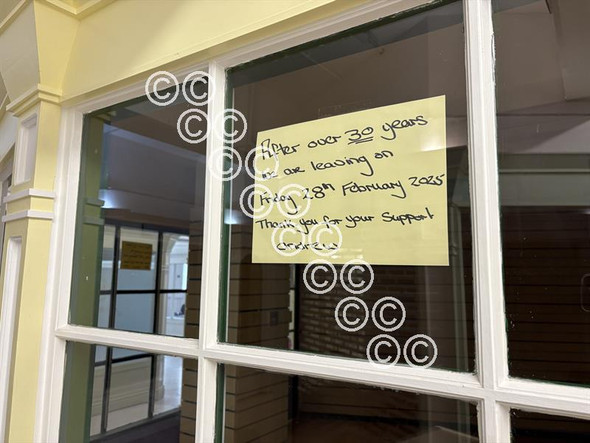 After over 30 years
we are leaving on
Friday 28th February 2025
Thank you for your support